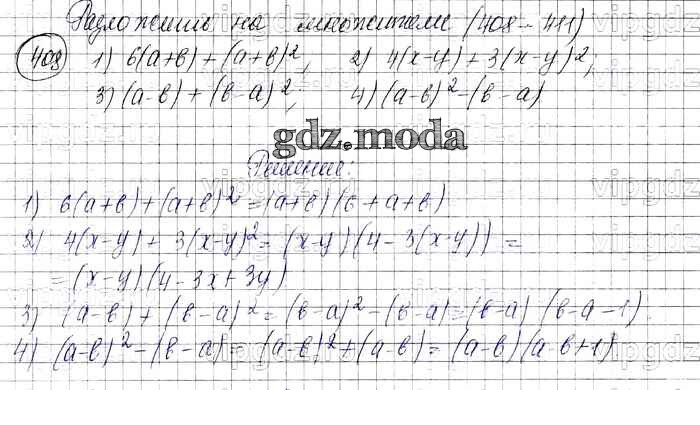 Разложить на множители (408 - 411)
408 1) 6(а+в) + (а+в)², 2) 4(x-y) + 3(x-y)²,
3) (а-в) + (в-а)², 4) (а-в)² - (в-а)
gdz.moda
Решение:
1) 6(а+в) + (а+в)² = (а+в)(6+а+в)
2) 4(x-y) + 3(x-y)² = (x-y)(4-3(x-y)) =
= (x-y)(4-3x+3y)
3) (а-в) + (в-а)² = (в-а)² - (в-а) = (в-а)(в-а-1)
4) (а-в)² - (в-а) = (а-в)² + (а-в) = (а-в)(а в+1)